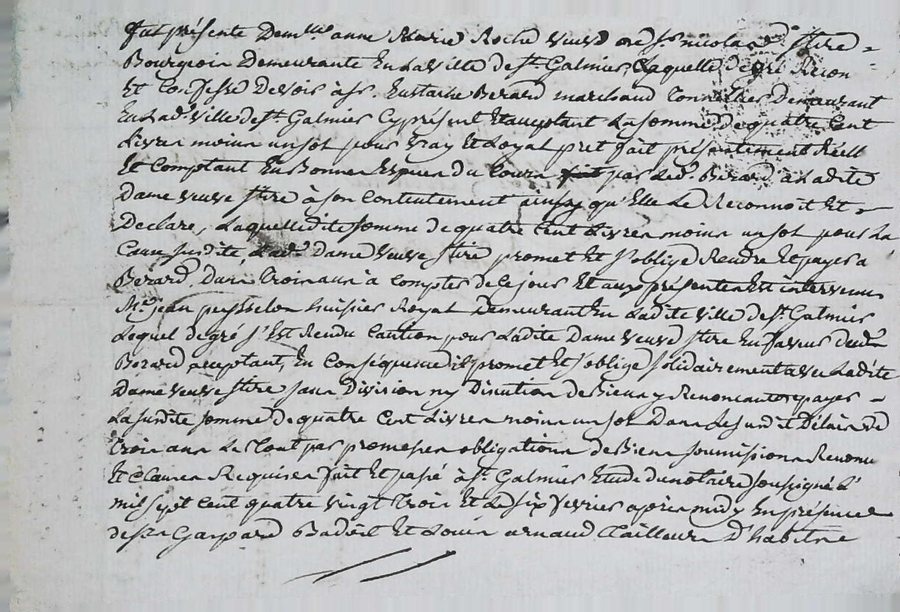 fut présente Dem.lle anne Marie Roche veuve de S.r nicolas Stire =
Bourgeois Demeurante En la ville de S.t Galmier, Laquelle de gré Recon
Et Confesse Devoir à S.r Eustache Berard marchand Demeurant
En lad. ville de S.t Galmier Cy présent Et acceptant La Somme de quatre Cent
Livres moins un sol pour vray et Loyal pret fait présentement Réell
Et Comptant En Bonnes Espices du Cours fait par led. Berard à Ladite
Dame veuve Stire à Son Contentement ainsy qu'Elle Le Reconnoit Et =
Declare, Laquelle dite Somme de quatre Cent Livres moins un sol pour La
Cause susdite Lad.e Dame veuve Stire promet Et s'oblige Rendre Et payer a
Berard Dans Trois ans à Compter de Ce jour Et aux présentes Est intervenu
M.e jean peysselon huissier Royal Demeurant En Ladite ville de S.t Galmier
Lequel de gré s'Est Rendu Caution pour Ladite Dame veuve Stire En faveur dud.
Berard acceptant, En Conséquence il promet Et s'oblige solidairement avec Ladite
Dame veuve Stire sans Division ny Discution de Biens y Renonceant payer =
La susdite somme de quatre Cent Livres moins un sol Dans Le susdit Délais de
Trois ans Le Tout par promesses obligations de Biens soumissions Renonc
Et Clauses Requises fait Et passé à S.t Galmier Etude du notaire soussigné L'
mil sept Cent quatre vingt Trois Et Le six fevrier après midy En présence
de S.rs Gaspard Badoil Et Louis arnaud Tailleurs D'habits